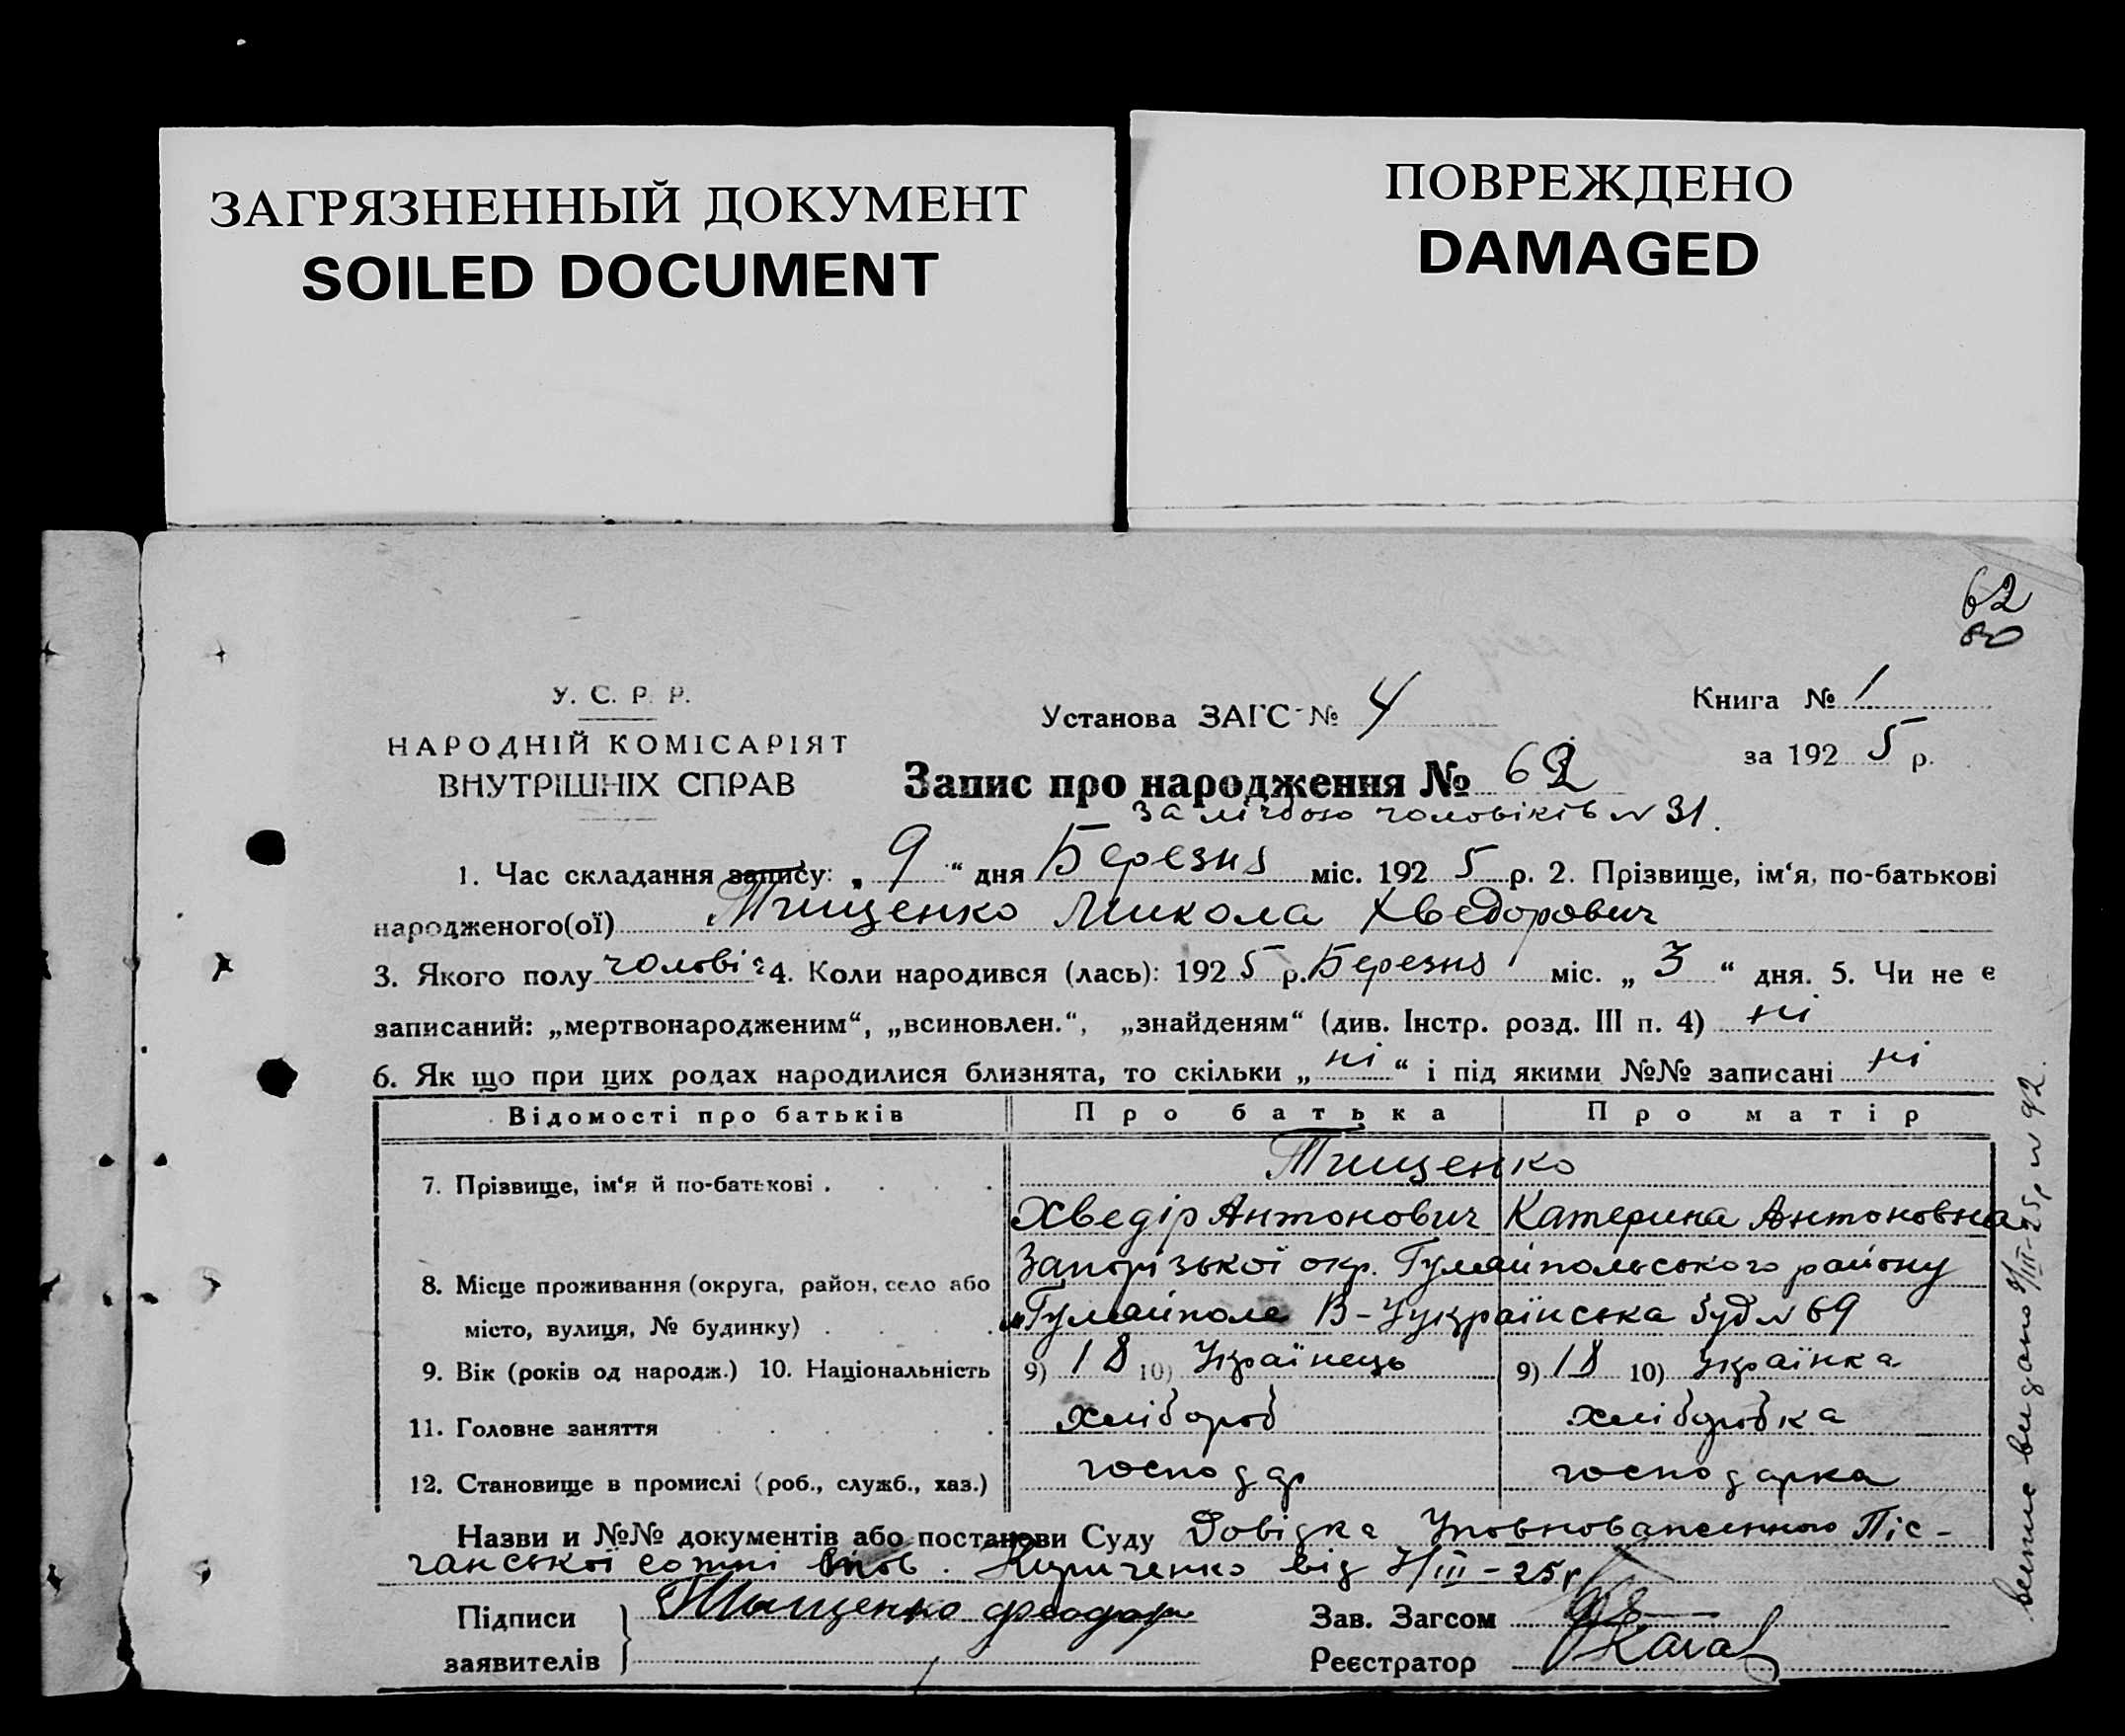 ЗАГРЯЗНЕННЫЙ ДОКУМЕНТ
SOILED DOCUMENT
ПОВРЕЖДЕНО
DAMAGED
62
80
У. С. Р. Р.
НАРОДНІЙ КОМІСАРІЯТ
ВНУТРІШНІХ СПРАВ
Установа ЗАГС № 4
Книга № 1
за 1925 р.
Запис про народження № 62
За лічбою чоловіків № 31.
1. Час складання запису: „ 9 “ дня Березня міс. 1925 р. 2. Прізвище, ім‘я, по-батькові
народженого(ої) Тищенко Микола Хведорович
3. Якого полу чоловіч 4. Коли народився (лась): 1925 р. Березня міс. „ 3 “ дня. 5. Чи не є
записаний: „мертвонародженим“, „всиновлен.“, „знайденям“ (див. Інстр. розд. III п. 4) ні
6. Як що при цих родах народилися близнята, то скільки „ ні “ і під якими №№ записані ні
Відомості про батьків Про батька Про матір
7. Прізвище, ім‘я й по-батькові . Тищенко
Хведір Антонович Катерина Антоновна
8. Місце проживання (округа, район, село або Запорізької окр. Гуляйпольського району
місто, вулиця, № будинку) Гуляйполе В-Українська буд № 69
9. Вік (років од народж.) 10. Національність 9) 18 10) Українець 9) 18 10) Українка
11. Головне заняття хлібороб хліборобка
12. Становище в промислі (роб., служб., хаз.) господар господарка
Назви и №№ документів або постанови Суду Довідка Уповноваженного Піс-
чанської сотні Кириченко від 7/III-25р
Підписи Тыщенко феодор
заявителів
Зав. Загсом
Реєстратор
випис видано 9/III-25р № 92.